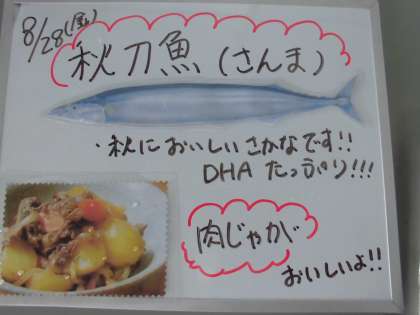 8/28(金)
秋刀魚(さんま)
・秋においしいさかなです!!
DHAたっぷり!!!
肉じゃが
おいしいよ!!